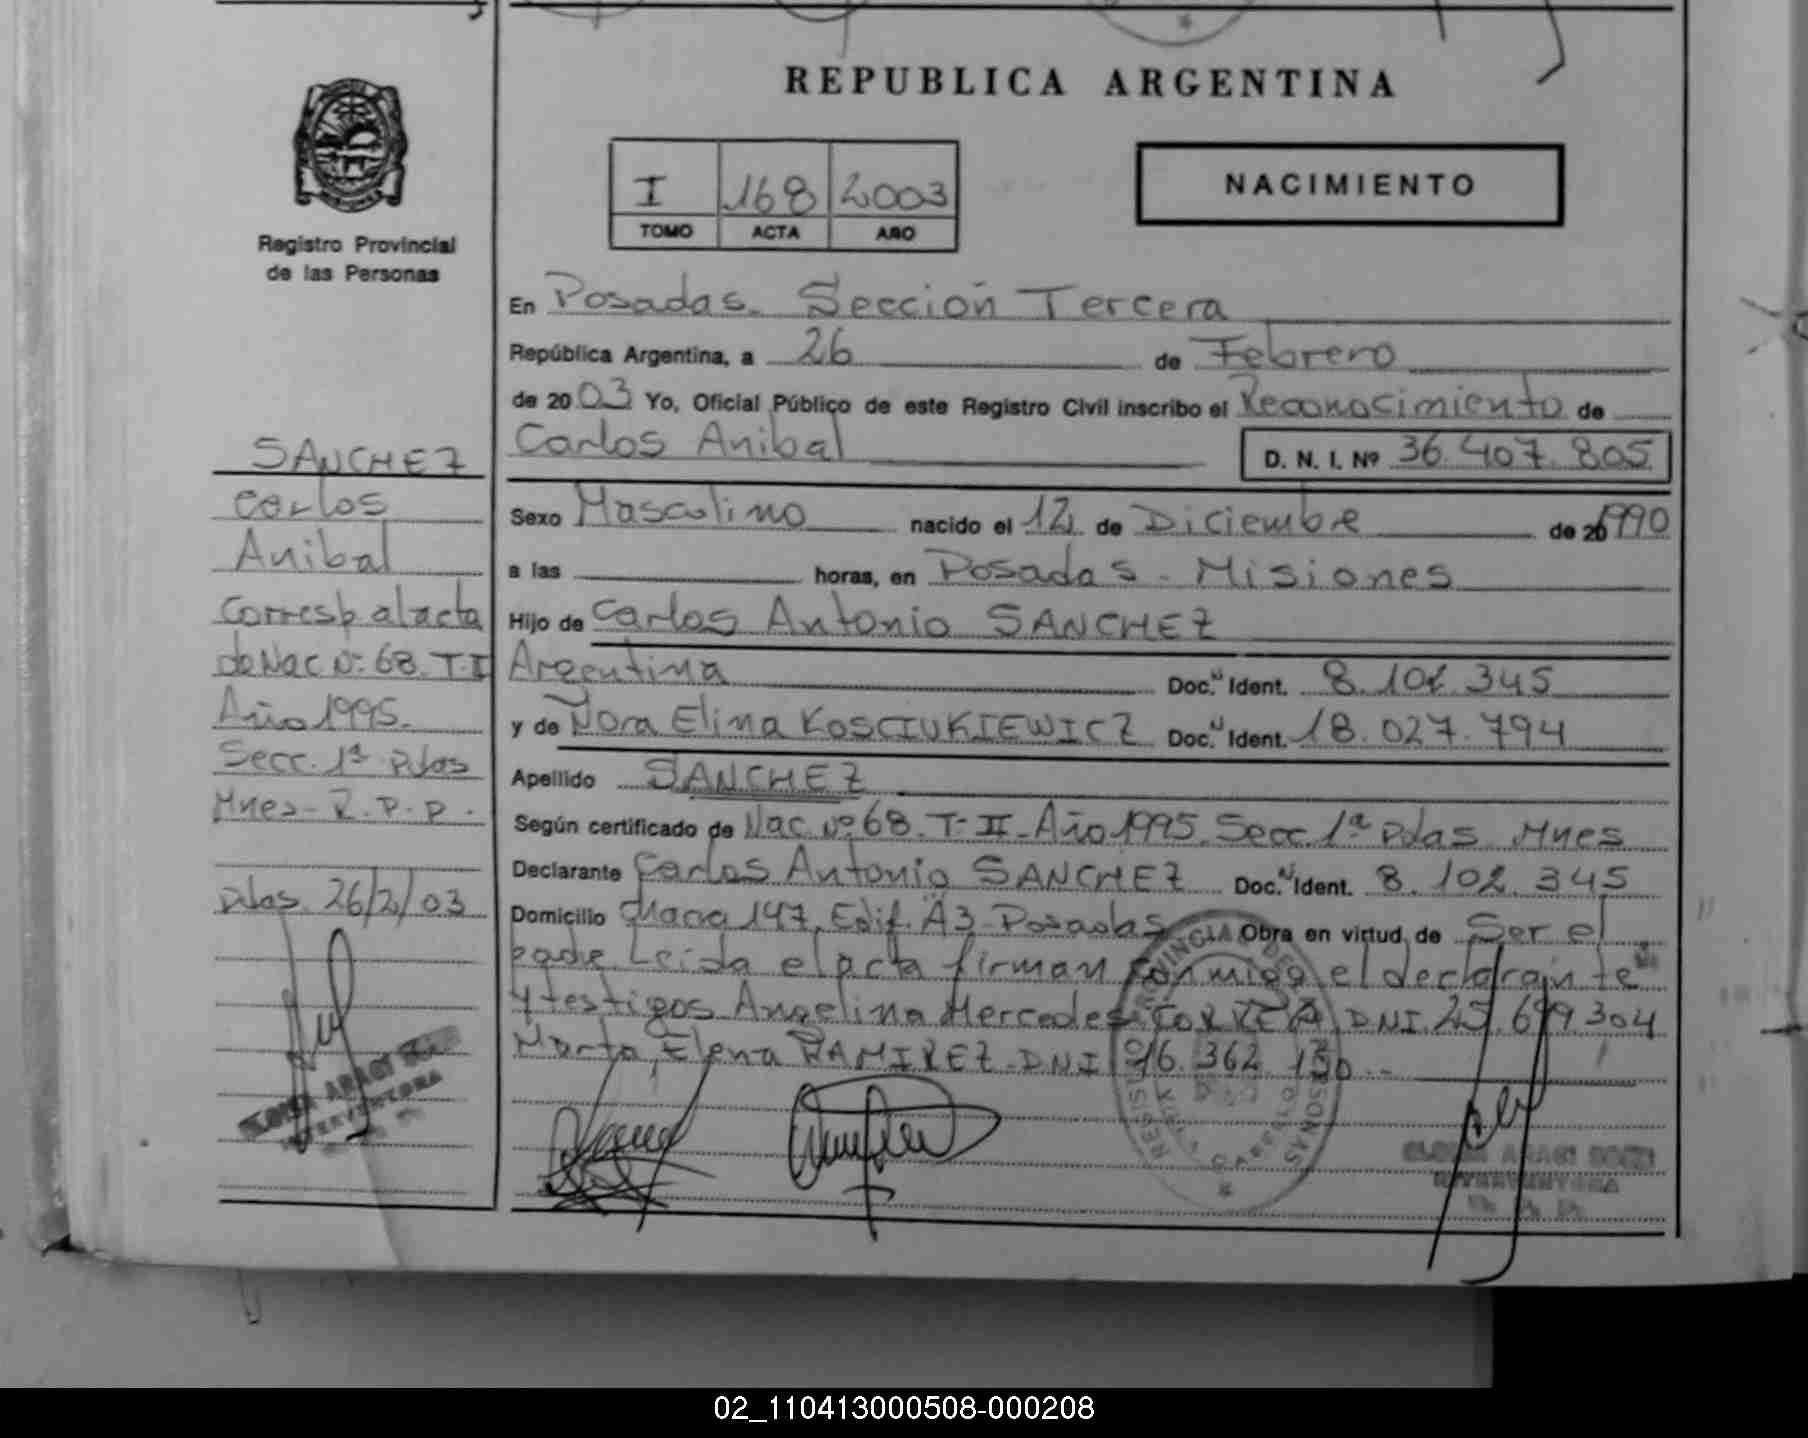 REPUBLICA ARGENTINA
NACIMIENTO
I 168 2003
TOMO ACTA AÑO
Registro Provincial
de las Personas
SANCHEZ
Carlos
Anibal
Corresp. al acta
de Nac Nº 68. T. II
Año 1995.
Secc. 1ª Pdas
Mnes - R. P. P.
Pdas. 26/2/03
En Posadas. Sección Tercera
República Argentina, a 26 de Febrero
de 2003 Yo, Oficial Público de este Registro Civil inscribo el Reconocimiento de
Carlos Anibal D. N. I. Nº 36.407.805
Sexo Masculino nacido el 12 de Diciembre de 1990
a las horas, en Posadas - Misiones
Hijo de Carlos Antonio SANCHEZ
Argentina Doc. Ident. 8.102.345
y de Nora Elina KOSCIUKIEWICZ Doc. Ident. 18.027.794
Apellido SANCHEZ
Según certificado de Nac. Nº 68. T- II - Año 1995. Secc. 1ª Pdas. Mnes
Declarante Carlos Antonio SANCHEZ Doc. Ident. 8.102.345
Domicilio chacra 147. Edif. A3 - Posadas Obra en virtud de Ser el
padre. Leida el acta firman conmigo el declarante
y testigos Angelina Mercedes DNI. 25.699.304
Marta Elena RAMIREZ - DNI 16.362.130 -
02_110413000508-000208